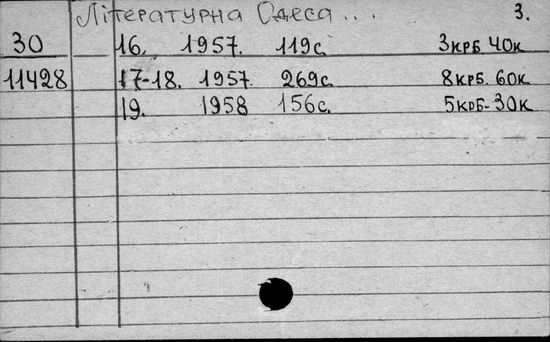 Літературна Одеса... 3.
30 16. 1957. 119с. 3крб 40к
11428 17-18. 1957. 269с. 8крб. 60к
19. 1958 156с. 5крб-30к